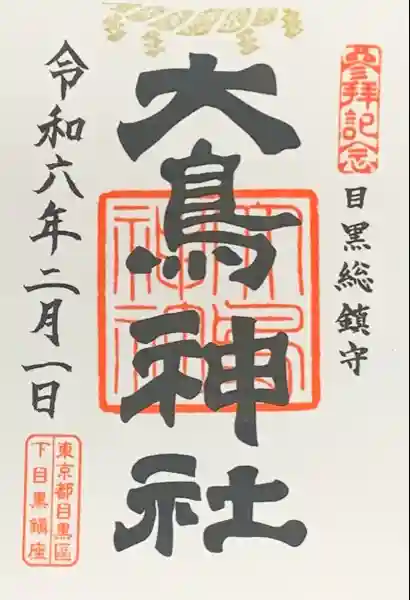 参拝記念
目黒総鎮守
大鳥神社
令和六年二月一日
東京都目黒區
下目黒鎮座